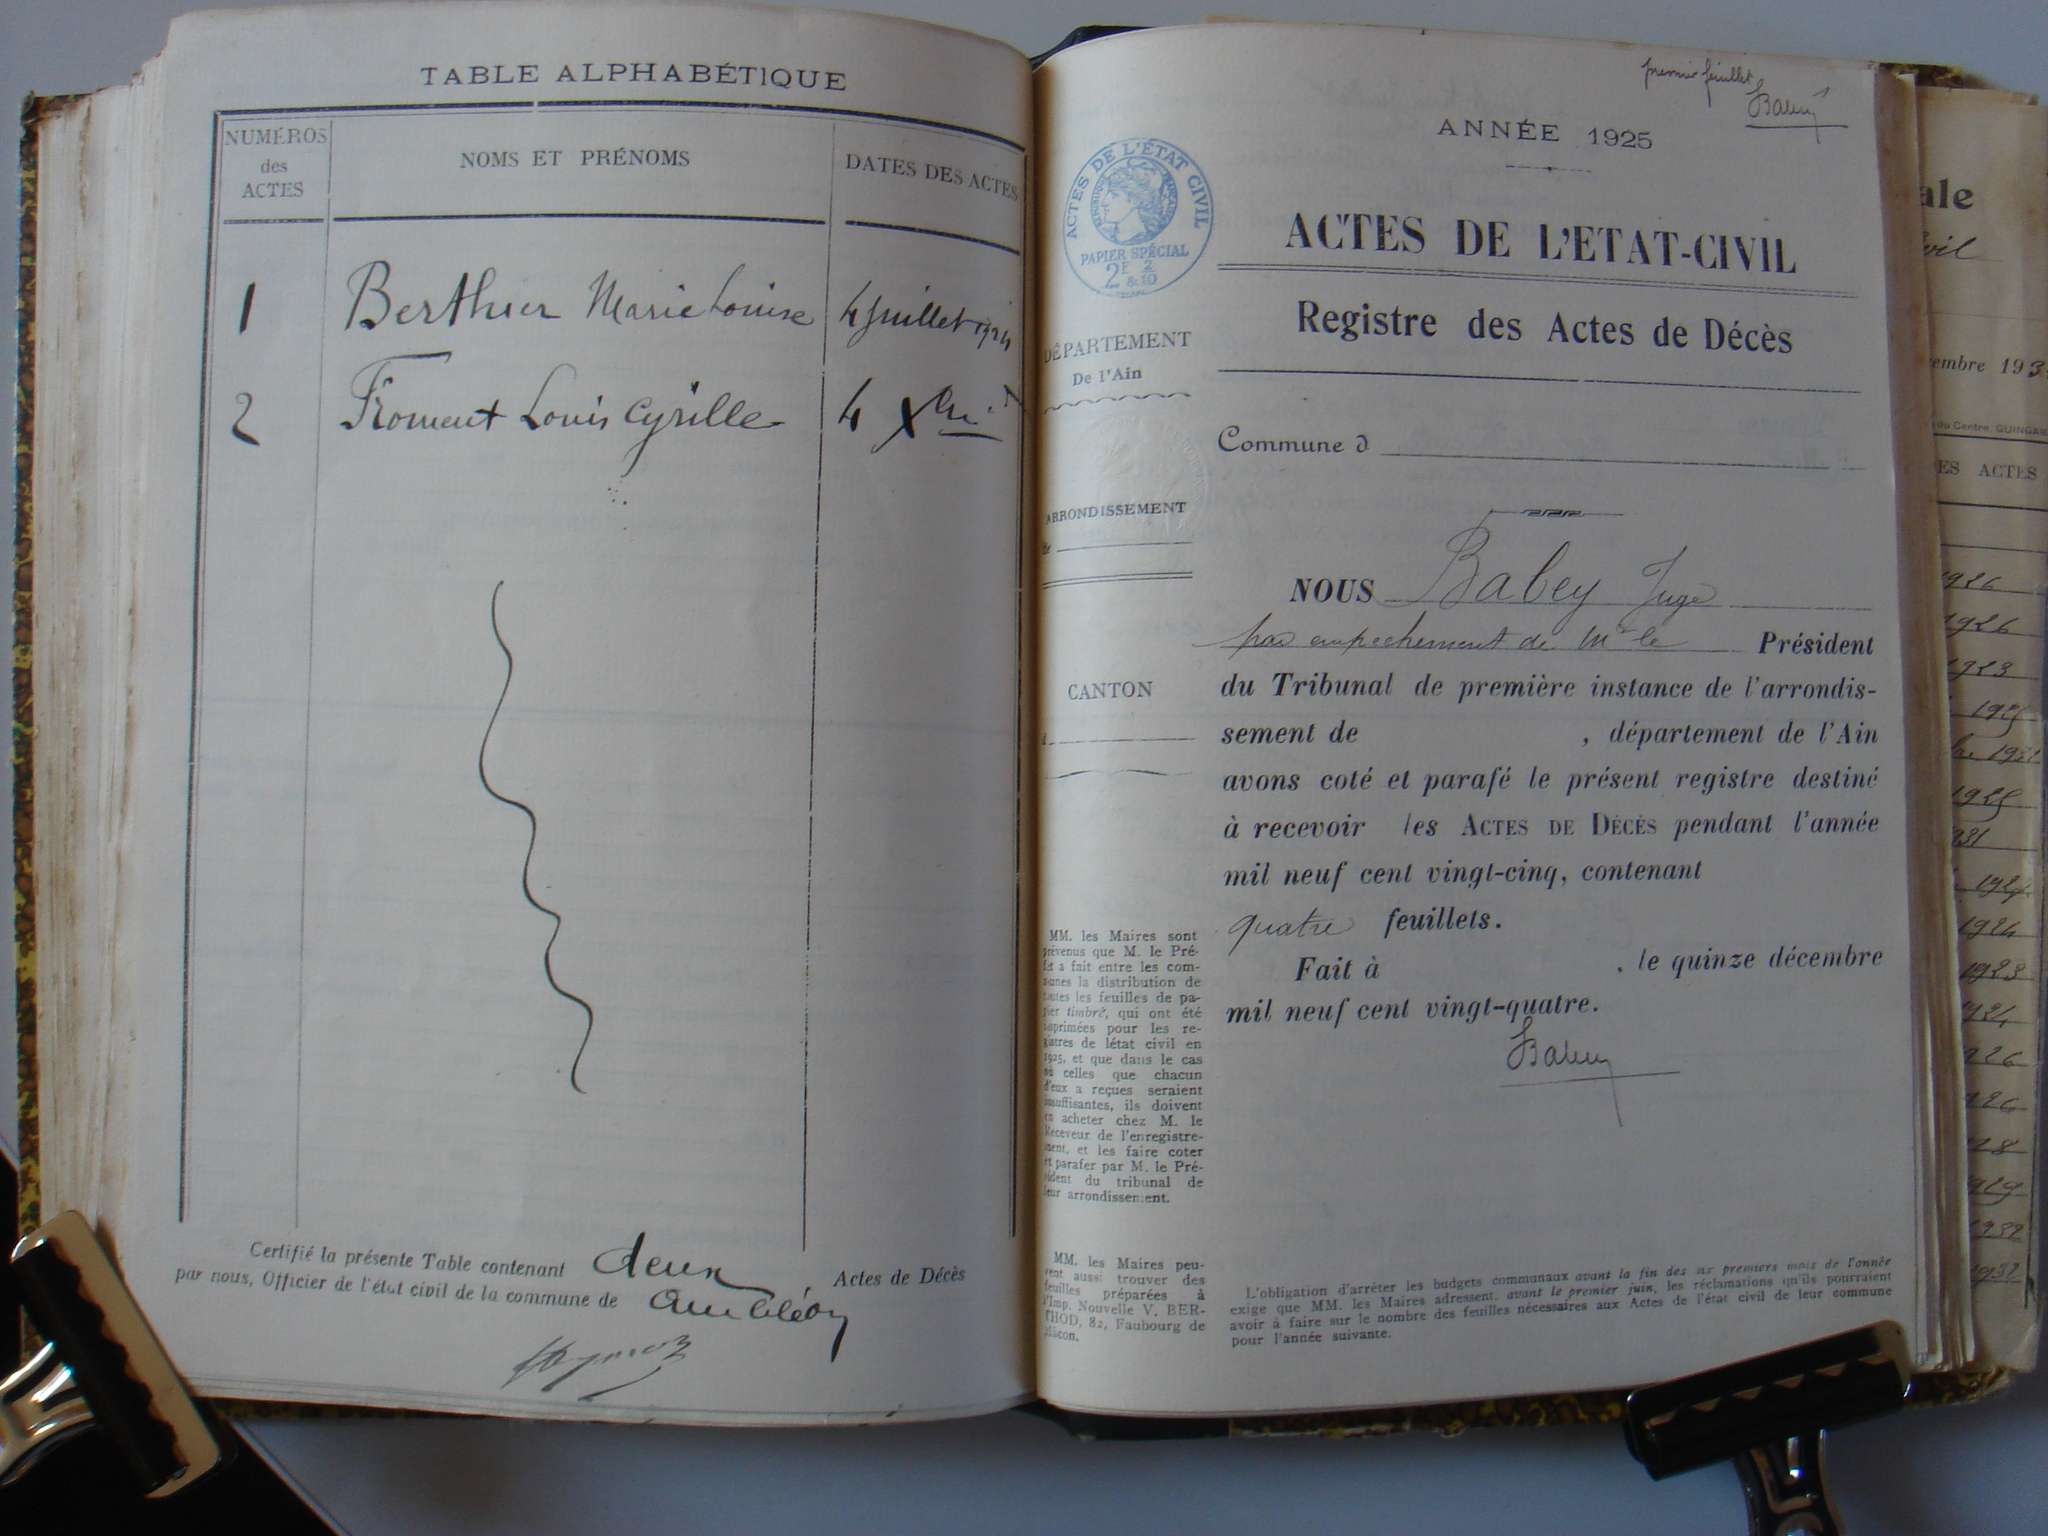 TABLE ALPHABÉTIQUE
NUMÉROS
des
ACTES
NOMS ET PRÉNOMS
DATES DES ACTES
1 Berthier Marie Louise 4 juillet 1924
2 Froment Louis Cyrille 4 Xbre
Certifié la présente Table contenant deux Actes de Décès
par nous, Officier de l'état civil de la commune de Ambléon
premier feuillet
Babey
ANNÉE 1925
ACTES DE L'ÉTAT CIVIL
PAPIER SPÉCIAL
2F 2
&10
ACTES DE L'ETAT-CIVIL
Registre des Actes de Décès
DÉPARTEMENT
De l'Ain
Commune d
ARRONDISSEMENT
de
CANTON
d
NOUS Babey Juge
par empechement de Mr le Président
du Tribunal de première instance de l'arrondis-
sement de , département de l'Ain
avons coté et parafé le présent registre destiné
à recevoir les ACTES DE DÉCÈS pendant l'année
mil neuf cent vingt-cinq, contenant
quatre feuillets.
Fait à , le quinze décembre
mil neuf cent vingt-quatre.
Babey
MM. les Maires sont
prévenus que M. le Pré-
fet a fait entre les com-
munes la distribution de
toutes les feuilles de pa-
pier timbré, qui ont été
imprimées pour les re-
gistres de létat civil en
1925, et que dans le cas
où celles que chacun
d'eux a reçues seraient
insuffisantes, ils doivent
en acheter chez M. le
Receveur de l'enregistre-
ment, et les faire coter
et parafer par M. le Pré-
sident du tribunal de
leur arrondissement.
MM. les Maires peu-
vent aussi trouver des
feuilles préparées à
l'Imp. Nouvelle V. BER-
THOD, 82, Faubourg de
Mâcon.
L'obligation d'arrêter les budgets communaux avant la fin des six premiers mois de l'année
exige que MM. les Maires adressent, avant le premier juin, les réclamations qu'ils pourraient
avoir à faire sur le nombre des feuilles nécessaires aux Actes de l'état civil de leur commune
pour l'année suivante.
ale
vil
embre 193
du Centre, GUINGAM
ES ACTES
1926
1926
1923
1925
1931
1925
931
1924
1924
1923
924
926
926
28
929
1932
1932